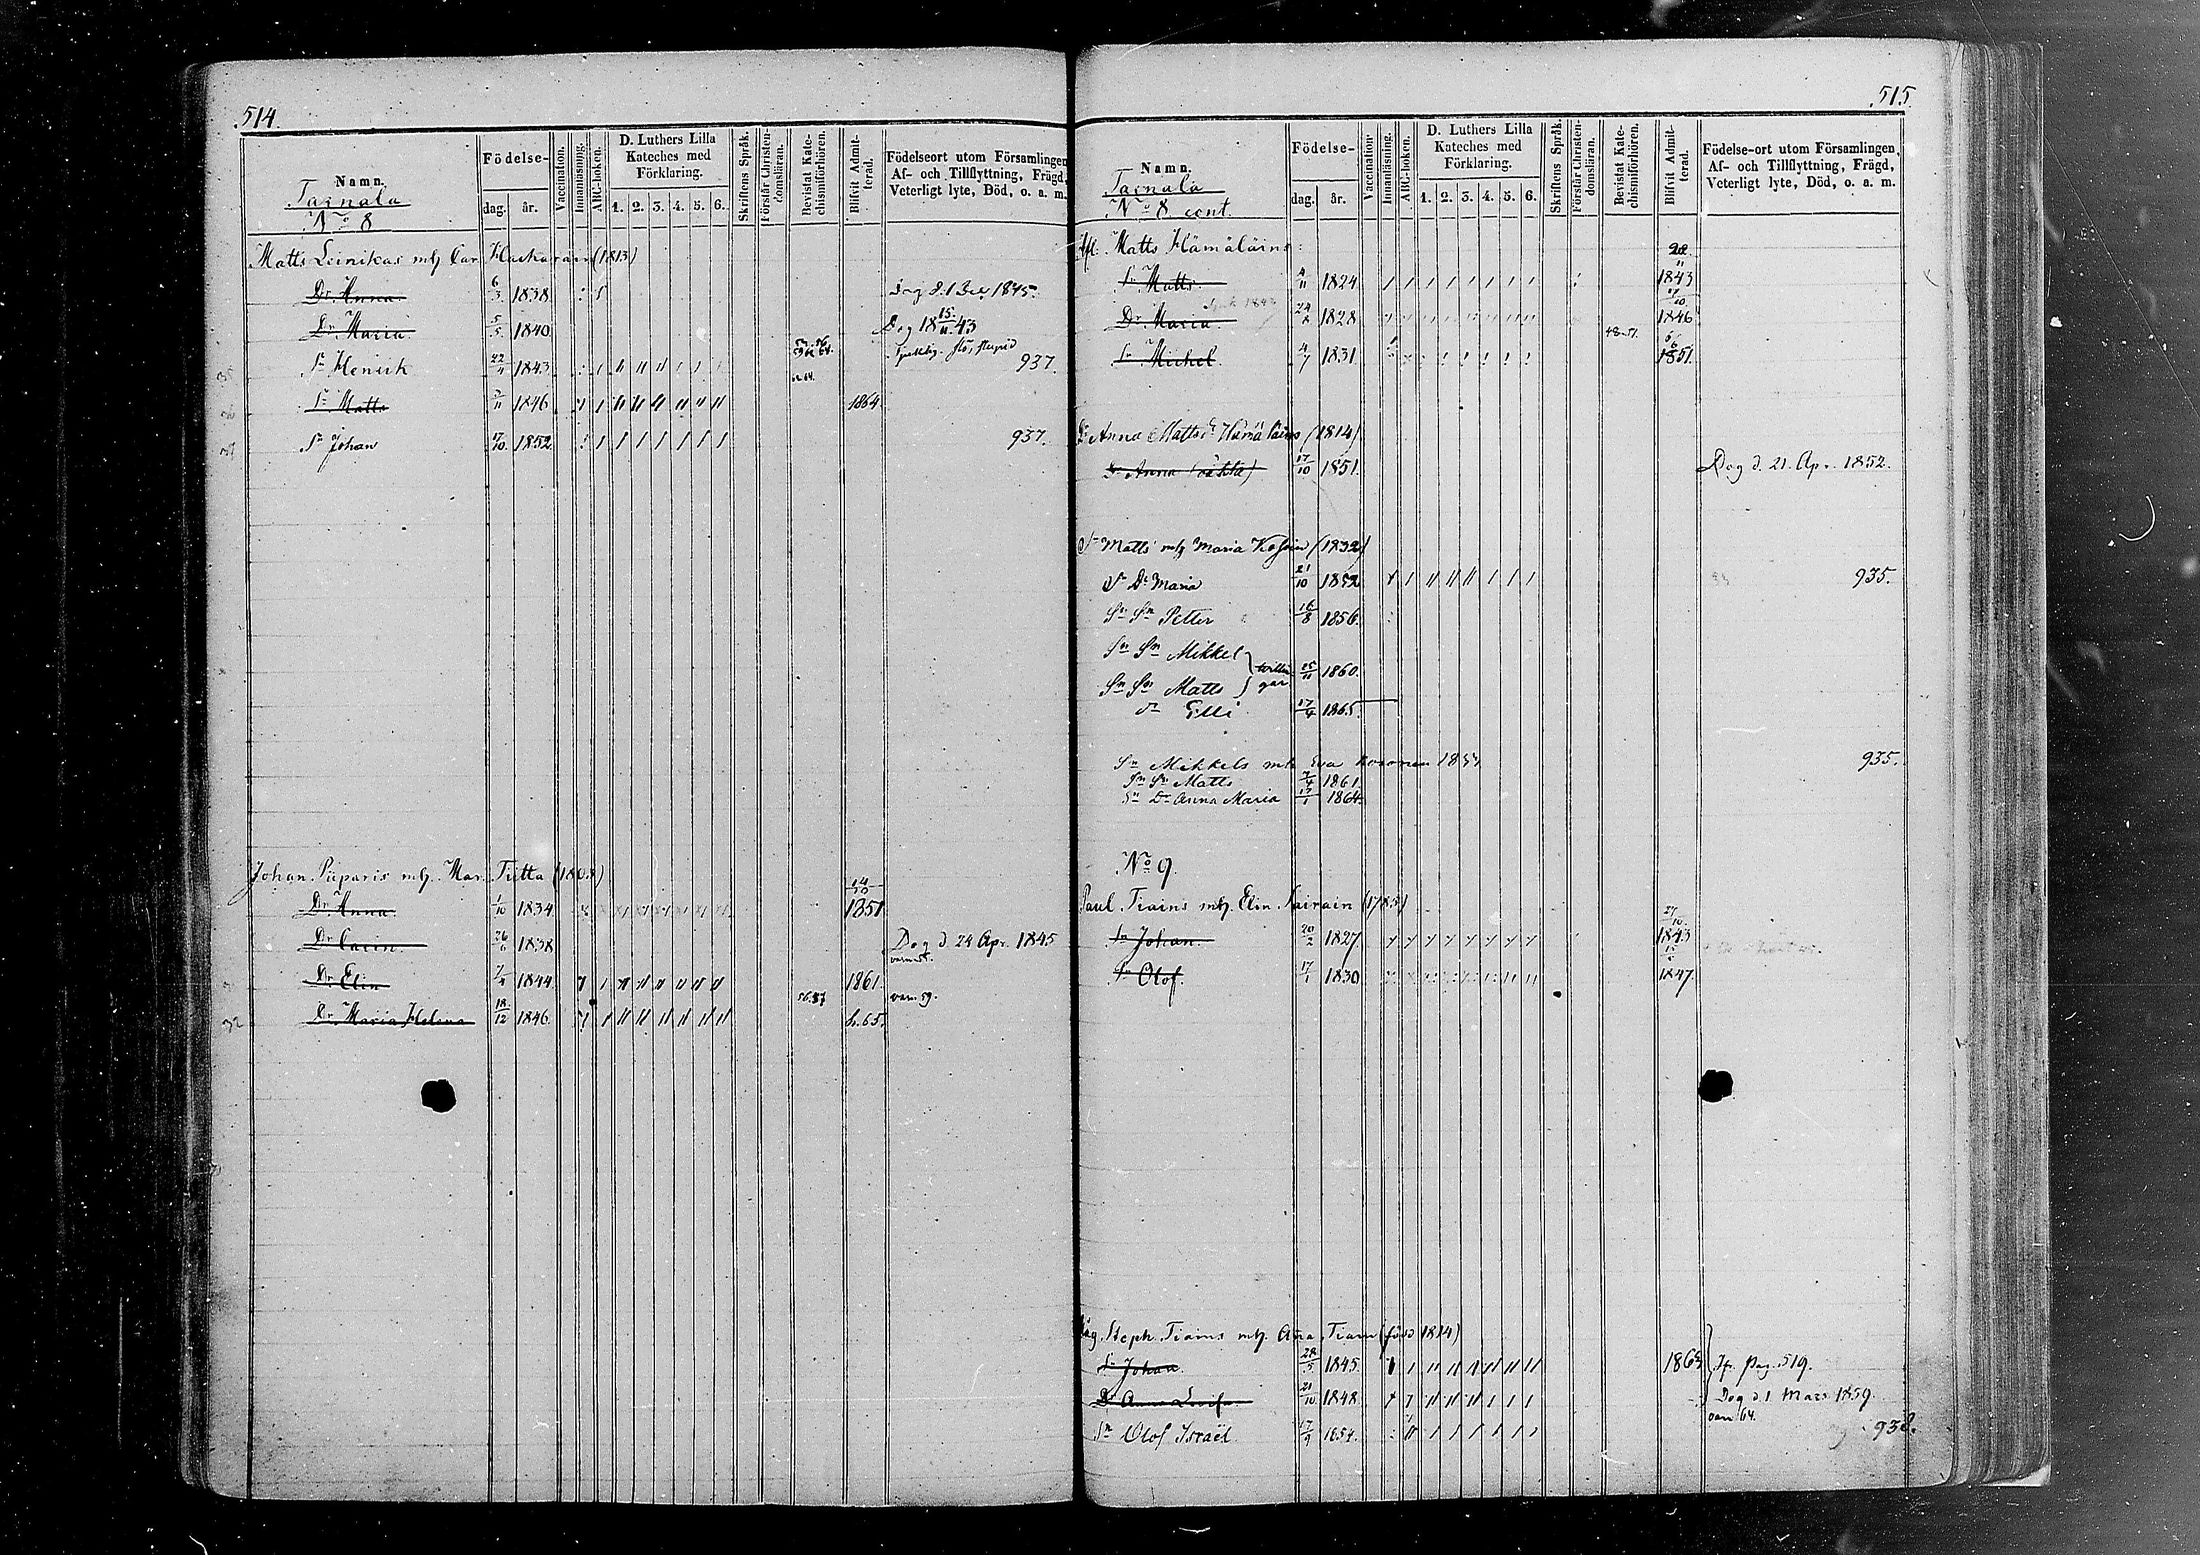 514.
Namn.
Födelse-
dag. år.
Vaccination.
Innanläsning.
ABC-boken.
D. Luthers Lilla
Kateches med
Förklaring.
1. 2. 3. 4. 5. 6.
Skriftens Språk.
Förstår Christen-
domsläran.
Bevistat Kate-
chismiförhören.
Blifvit Admit-
terad.
Födelseort utom Församlingen
Af- och Tillflyttning, Frägd,
Veterligt lyte, Död, o. a. m.
Tainala
No 8
Matts Leinikas mh Car. (1813)
Dr Anna 6/3 1838 Dog d. 1 1845.
Dr Maria 5/5 1840 Dog 18 15/11 43
Sn Henrik 22/4 1843 937.
Sn Matts 1846 1864
Sn Johan 1852 937.
Johan Piiparis mh. Mar. Tiitta (1803)
Dr Anna 1/10 1834 1851
Dr Carin 26/6 1838 Dog d. 24 Apr. 1845
Dr Elin 1844 1861
56.57 varn. 59.
Dr Maria Helena 18/12 1846 h. 65.
515.
Namn.
Födelse-
dag. år.
Vaccination.
Innanläsning.
ABC-boken.
D. Luthers Lilla
Kateches med
Förklaring.
1. 2. 3. 4. 5. 6.
Skriftens Språk.
Förstår Christen-
domsläran.
Bevistat Kate-
chismiförhören.
Blifvit Admit-
terad.
Födelse-ort utom Församlingen
Af- och Tillflyttning, Frägd,
Veterligt lyte, Död, o. a. m.
Tainala
No 8 cont.
Matts Hämäläins
Sn Matts 4/11 1824 1843
Dr Maria 1828 1846
48-51.
Sn Michel 4/7 1831 1851.
Dr Anna Mattsdr Hämäläins (1814)
Dr Anna (oäkta) 17/10 1851. Dog d. 21. Apr. 1852.
Sn Matts mh Maria (1832)
Sn Dr Maria 21/10 1852 935.
Sn Sn Petter 16/8 1856.
Sn Sn Mikkel
tvillin- 25/11 1860.
Sn Sn Matts gar
Sn Elli 17/4 1865.
Sn Mikkels mh Eva Kosonen 935.
Sn Sn Matts 1861
Sn Dr Anna Maria 17/1 1864.
No 9.
Paul Tiains mh. Elin (1785)
Sn Johan 20/2 1827 27/10 1843
Sn Olof. 17/1 1830 1847.
Steph. Tiains mh. Ana Tiain (född 1814)
Sn Johan 28/5 1845 Jfr pag. 519.
Dr Anna Lovisa 21/10 1848 Dog d 1 Mars 1859.
Sn Olof Israël 17/9 1854. 938.